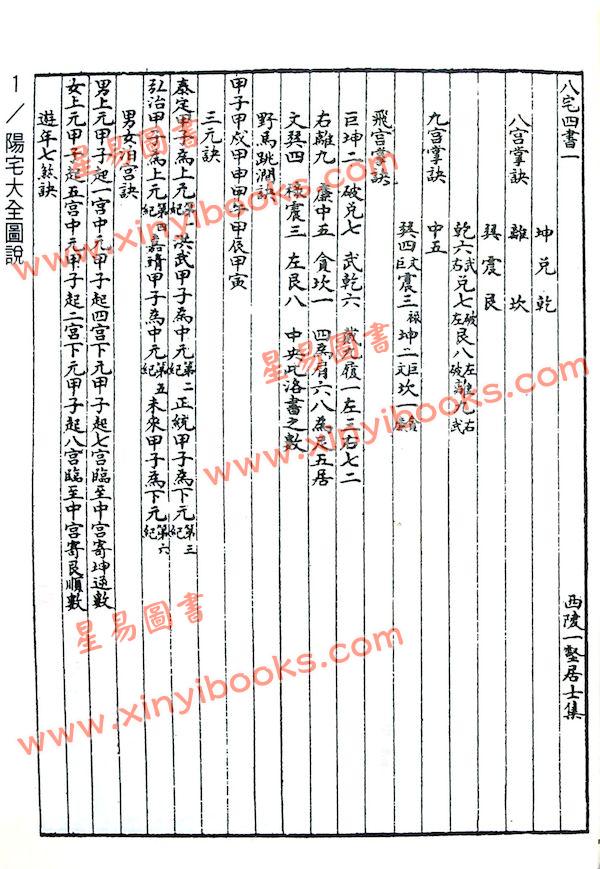 八宅四書一
西陵一壑居士集
坤兌乾
八宮掌訣
離坎
巽震艮
乾六武右兌七破左艮八左破離九右武
九宮掌訣
中五
巽四文巨震三祿坤二巨文坎一貪
飛宮掌訣
巨坤二 破兌七 武乾六 戴九履一左三右七二
右離九 廉中五 貪坎一 四為肩六八為足五居
文巽四 祿震三 左艮八 中央此洛書之數
野馬跳澗訣
甲子甲戌甲申甲午甲辰甲寅
三元訣
泰定甲子為上元第一紀洪武甲子為中元第二紀正統甲子為下元第三紀
弘治甲子為上元第四紀嘉靖甲子為中元第五紀未來甲子為下元第六紀
男女泊宮訣
男上元甲子起一宮中元甲子起四宮下元甲子起七宮臨至中宮寄坤逆數
女上元甲子起五宮中元甲子起二宮下元甲子起八宮臨至中宮寄艮順數
遊年七煞訣
1/陽宅大全圖說
星易圖書
www.xinyibooks.com
星易圖書
www.xinyibooks.com
星易圖書
www.xinyibooks.com